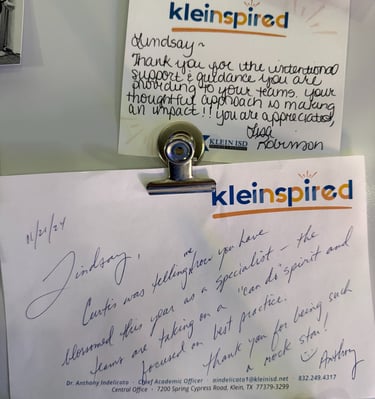 kleinspired
Lindsay~
Thank you for the intentional
support & guidance you are
providing to your teams. Your
thoughtful approach is making
an impact!! You are appreciated,
Lisa
Robinson
KLEIN ISD
kleinspired
11/21/24
Lindsay,
Curtis was telling me how you have
blossomed this year as a specialist - the
teams are taking on a "can do" spirit and
focused on best practice.
Thank you for being such
a rock star!
Anthony
Dr. Anthony Indelicato · Chief Academic Officer · aindelicato1@kleinisd.net 832.249.4317
Central Office · 7200 Spring Cypress Road, Klein, TX 77379-3299